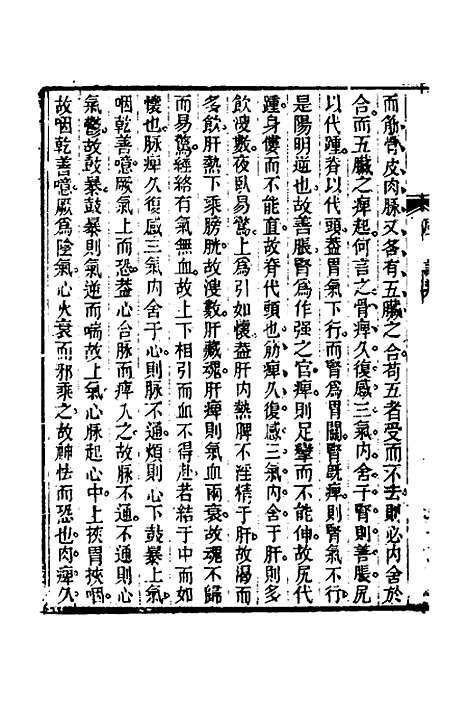 而筋骨皮肉脉又各有五臟之合苟五者受而不去則必内舍於
合而五臟之痺起何言之骨痺久復感三氣内舍于腎則善脹尻
以代踵脊以代頭蓋胃氣下行而腎爲胃關腎既痺則腎氣不行
是陽明逆也故善脹腎爲作强之官痺則足攣而不能伸故尻代
踵身僂而不能直故脊代頭也筋痺久復感三氣内舍于肝則多
飲溲數夜卧易驚上爲引如懷蓋肝内熱脾不淫精于肝故渴而
多飲肝熱下乘膀胱故溲數肝藏魂肝痺則氣血兩衰故魂不歸
而易驚經絡有氣無血故上下相引而血不得赴若結于中而如
懷也脉痺久復感三氣内舍于心則脉不通煩則心下鼓暴上氣
咽乾善噫厥氣上而恐蓋心合脉而痺入之故脉不通不通則心
氣鬱故鼓暴鼓暴則氣逆而喘故上氣心脉起心中上挾胃挾咽
故咽乾善噫厥爲陰氣心火衰而邪乘之故神怯而恐也肉痺久